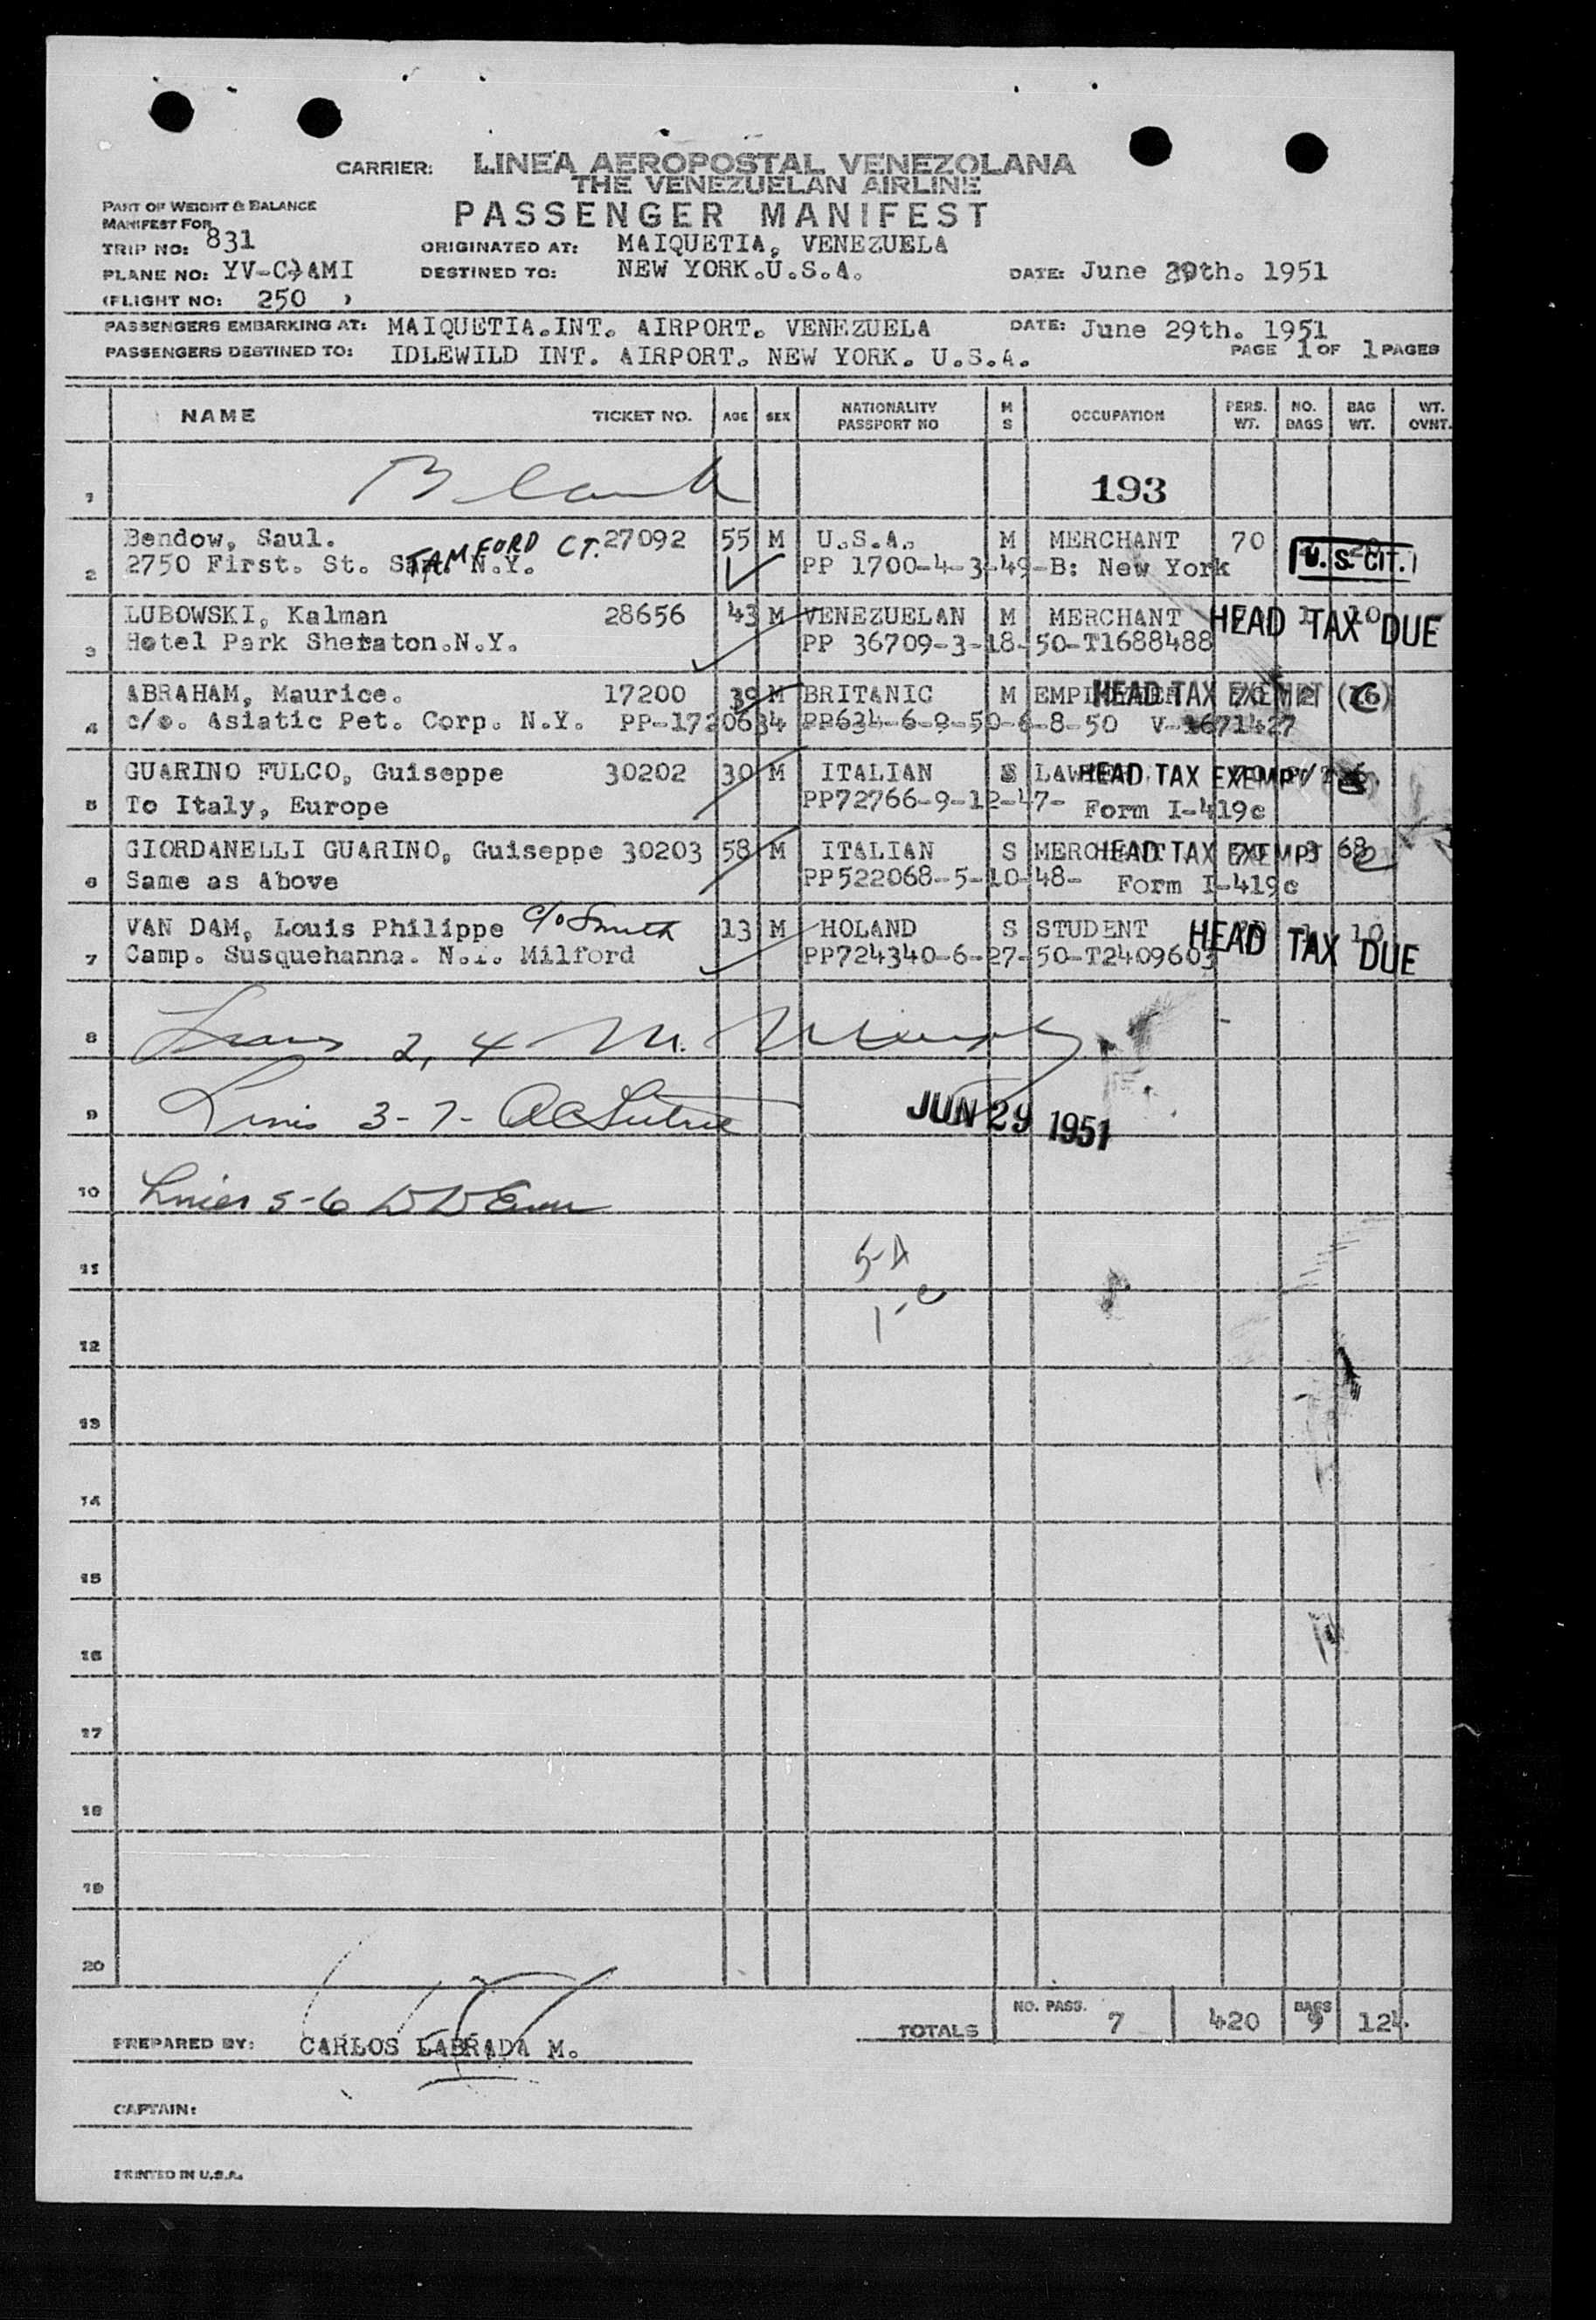 CARRIER: LINEA AEROPOSTAL VENEZOLANA
THE VENEZUELAN AIRLINE
PASSENGER MANIFEST
PART OF WEIGHT & BALANCE
MANIFEST FOR
TRIP NO: 831
ORIGINATED AT: MAIQUETIA, VENEZUELA
PLANE NO: YV-C-AMI
DESTINED TO: NEW YORK.U.S.A.
DATE: June 29th. 1951
(FLIGHT NO: 250 )
PASSENGERS EMBARKING AT: MAIQUETIA.INT. AIRPORT. VENEZUELA DATE: June 29th. 1951
PASSENGERS DESTINED TO: IDLEWILD INT. AIRPORT. NEW YORK. U.S.A. PAGE 1 OF 1 PAGES
NAME TICKET NO. AGE SEX NATIONALITY PASSPORT NO M S OCCUPATION PERS. WT. NO. BAGS BAG WT. WT. OVNT.
1 Blank 193
Bendow, Saul. 27092 55 M U.S.A. M MERCHANT 70
2 2750 First. St. STAMFORD CT. N.Y. PP 1700-4-3-49-B: New York U.S. CIT.
LUBOWSKI, Kalman 28656 43 M VENEZUELAN M MERCHANT HEAD TAX DUE
3 Hotel Park Sheraton.N.Y. PP 36709-3-18-50-T1688488
ABRAHAM, Maurice. 17200 39 M BRITANIC M HEAD TAX EXEMPT
4 c/o. Asiatic Pet. Corp. N.Y. PP-1720634 PP634-6-9-50-6-8-50 V-1671427
GUARINO FULCO, Guiseppe 30202 30 M ITALIAN S HEAD TAX EXEMPT
5 To Italy, Europe PP72766-9-12-47- Form I-419c
GIORDANELLI GUARINO, Guiseppe 30203 58 M ITALIAN S HEAD TAX EXEMPT 68
6 Same as Above PP522068-5-10-48- Form I-419c
VAN DAM, Louis Philippe c/o Smith 13 M HOLAND S STUDENT HEAD TAX DUE
7 Camp. Susquehanna. Milford PP724340-6-27-50-T2409603
8 2, 4 M.
9 Lines 3-7-
JUN 29 1951
10 Lines 5-6
11 5-A
12 1-C
13
14
15
16
17
18
19
20
TOTALS NO. PASS. 7 420 BAGS 9 124.
PREPARED BY: CARLOS LABRADA M.
CAPTAIN:
PRINTED IN U.S.A.